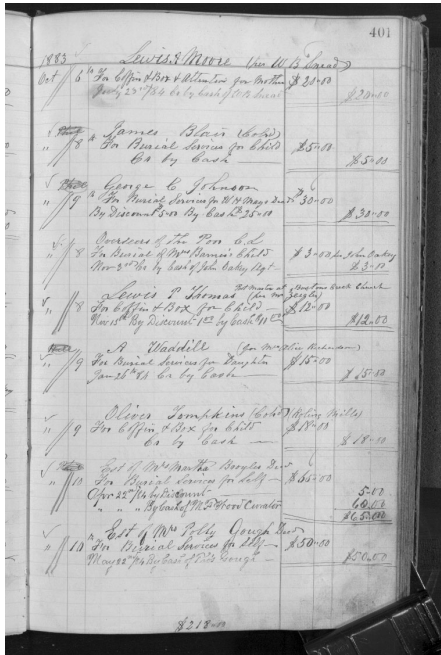 401
1883 Lewis & Moore (per W B Snead)
Oct 6th For Coffin & Box & Attention for Mother $20-00
July 23rd /84 Cr by Cash of W B Snead $20-00
James Blair (Cold)
" 8 " For Burial Services for Child $5-00
Cr by Cash — $5-00
George C Johnson
" 9 " For Burial Services for W H Mayo Decd $30-00
By Discount 5-00 By Cash 25-00 $30-00
Overseers of the Poor C.L.
" 8 For Burial of Mrs Child $3-00 John Oakey
Nov 3rd Cr by Cash of John Oakey Agt $3-00
Lewis P Thomas (per Mr Zeigler)
" 8 For Coffin & Box for Child $12-00
Nov 15th By Discount 1.00 by Cash $11.00 $12-00
A Waddill (per Mrs Richardson)
" 9 For Burial Services for Daughter $15-00
Jan 26th 84 Cr by Cash — $15-00
Oliver Tompkins (Cold)
" 9 For Coffin & Box for Child $18-00
Cr by Cash — $18-00
Est of Mrs Martha Broyles Decd
" 10 For Burial Services for Self — $65-00
Apr 22nd /84 by Discount 5-00
" " " By Cash of M F Wood Curator 60-00
$65-00
Est of Mrs Polly Gough Decd
" 10 " For Burial Services for Self — $50-00
May 22nd /84 By Cash of Gough — $50-00
$218-00